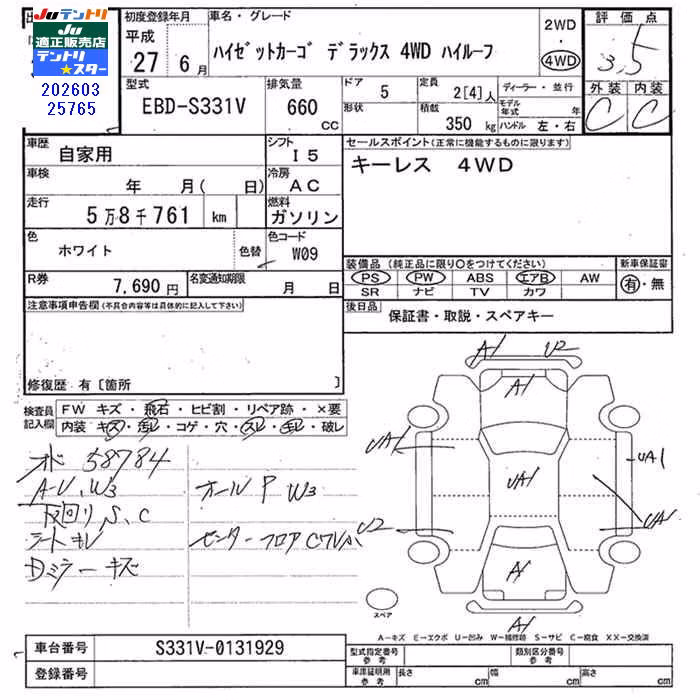 JUテントリ
JU
適正販売店
テントリ
★スター
202603
25765
初度登録年月
平成
27 6月
車名・グレード
ハイゼットカーゴ デラックス 4WD ハイルーフ
2WD
・
4WD
評価点
3.5
外装 内装
C C
型式
EBD-S331V
排気量
660
CC
ドア
5
形状
定員
2[4]人
積載
350kg
ディーラー・並行
モデル年式 年
ハンドル 左・右
車歴
自家用
シフト
I5
車検
年 月( 日)
冷房
AC
走行
5万8千761 km
燃料
ガソリン
色
ホワイト
色替
色コード
W09
R券
7,690円
名変通知期限
月 日
セールスポイント(正常に機能するものに限ります)
キーレス 4WD
装備品 (純正品に限り○をつけてください)
新車保証書
PS PW ABS エアB AW
SR ナビ TV カワ
有・無
後日品
保証書・取説・スペアキー
注意事項申告欄(不具合内容等は具体的に記入して下さい)
修復歴 有〔箇所 〕
検査員
記入欄
FW キズ・飛石・ヒビ割・リペア跡・×要
内装 キズ・汚レ・コゲ・穴・スレ・キレ・破レ
58784
A-U、W3
オールP W3
下回りS、C
シートキレ
センターフロア
Dミラーキズ
A1 U2
A1
UA1
UA1
UA1
UA1
U2
A1
A1
スペア
A-キズ E-エクボ U-凹み W-補修跡 S-サビ C-腐食 XX-交換済
車台番号
S331V-0131929
登録番号
型式指定番号
参考
類別区分番号
参考
車庫証明用
参考
長さ cm
幅 cm
高さ cm